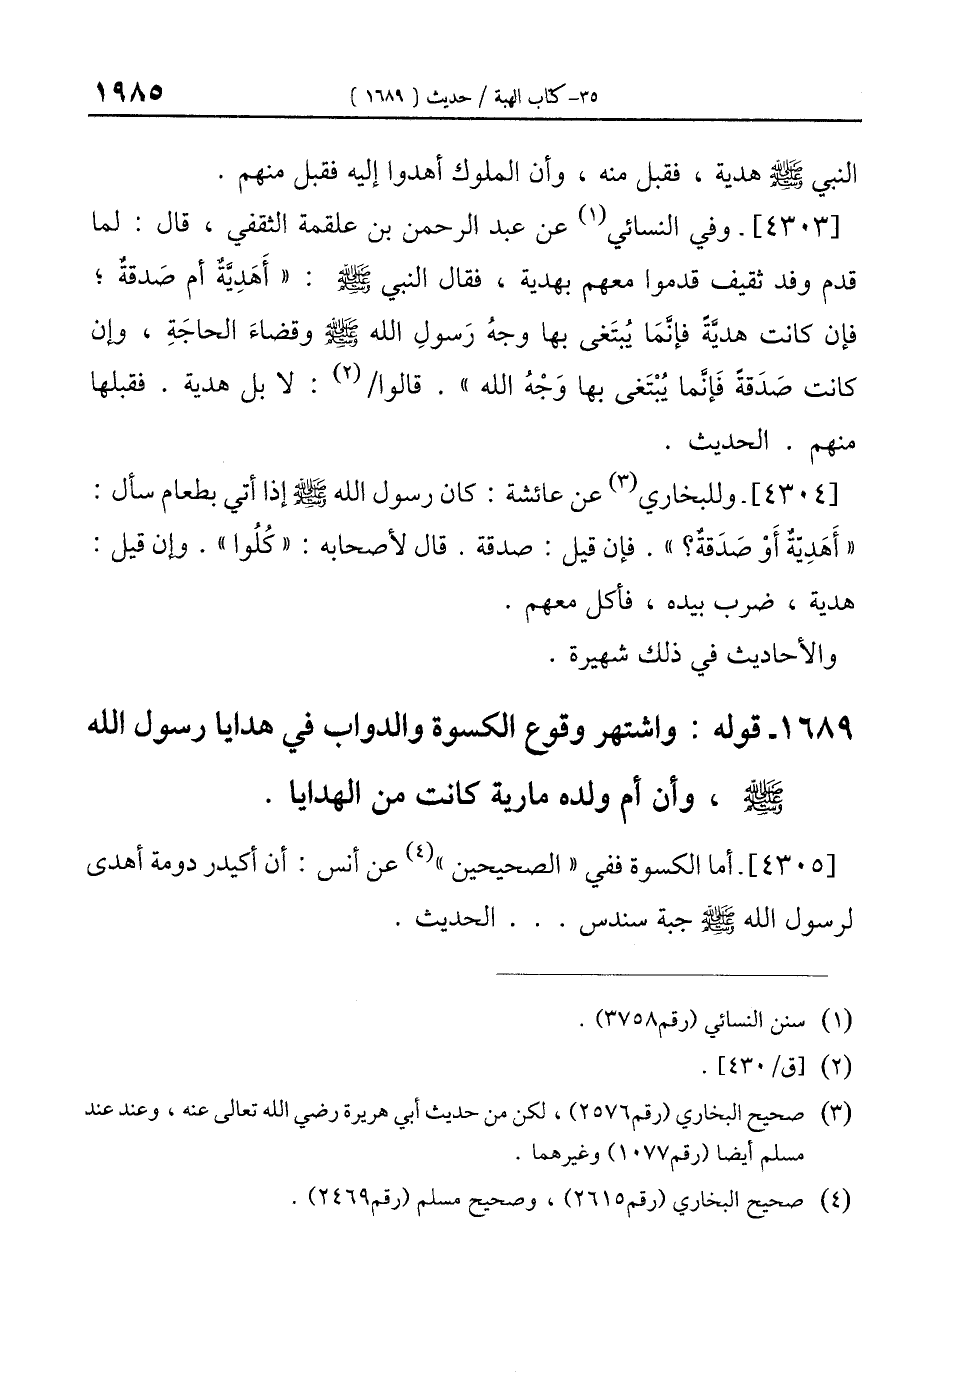 ٣٥- كتاب الهبة / حديث ( ١٦٨٩ )
١٩٨٥
النبي ﷺ هدية ، فقبل منه ، وأن الملوك أهدوا إليه فقبل منهم .
[٤٣٠٣]ـ وفي النسائي(١) عن عبد الرحمن بن علقمة الثقفي ، قال : لما
قدم وفد ثقيف قدموا معهم بهدية ، فقال النبي ﷺ : « أَهَدِيَّةٌ أم صَدقةٌ ؛
فإن كانت هديَّةً فإنَّمَا يُبتَغى بها وجهُ رَسولِ الله ﷺ وقضاءَ الحاجَةِ ، وإن
كانت صَدَقةً فَإنَّما يُبْتَغى بها وَجْهُ الله » . قالوا/(٢) : لا بل هدية . فقبلها
منهم . الحديث .
[٤٣٠٤]ـ وللبخاري(٣) عن عائشة : كان رسول الله ﷺ إذا أتي بطعام سأل :
« أَهَدِيّةٌ أَوْ صَدَقةٌ؟ » . فإن قيل : صدقة . قال لأصحابه : « كُلُوا » . وإن قيل :
هدية ، ضرب بيده ، فأكل معهم .
والأحاديث في ذلك شهيرة .
١٦٨٩ـ قوله : واشتهر وقوع الكسوة والدواب في هدايا رسول الله
ﷺ ، وأن أم ولده مارية كانت من الهدايا .
[٤٣٠٥]ـ أما الكسوة ففي « الصحيحين »(٤) عن أنس : أن أكيدر دومة أهدى
لرسول الله ﷺ جبة سندس . . . الحديث .
(١) سنن النسائي (رقم٣٧٥٨) .
(٢) [ق/٤٣٠] .
(٣) صحيح البخاري (رقم٢٥٧٦) ، لكن من حديث أبي هريرة رضي الله تعالى عنه ، وعند عند
مسلم أيضا (رقم١٠٧٧) وغيرهما .
(٤) صحيح البخاري (رقم٢٦١٥) ، وصحيح مسلم (رقم٢٤٦٩) .